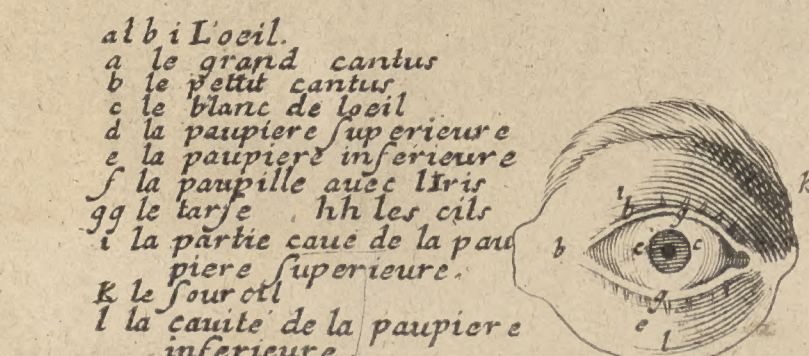 a l b i L'oeil.
a le grand cantus
b le pettit cantus
c le blanc de loeil
d la paupiere ſuperieure
e la paupiere inferieure
f la paupille auec lIris
gg le tarſe hh les cils
i la partie caue de la pau
piere ſuperieure.
K le ſourcil
l la cauité de la paupiere
inferieure.
k
i
b g
b c c
g f
e
l